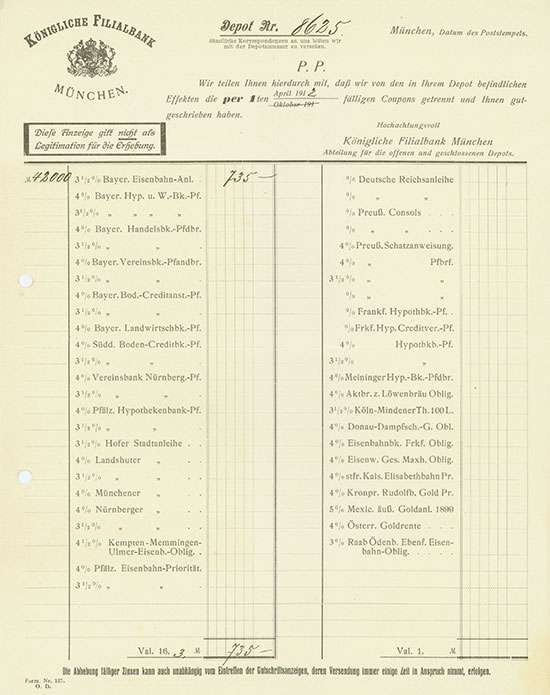 KÖNIGLICHE FILIALBANK
MÜNCHEN.
Depot Nr. 8625.
Sämtliche Korrespondenzen an uns bitten wir
mit der Depotnummer zu versehen.
München, Datum des Poststempels.
P. P.
Wir teilen Ihnen hierdurch mit, daß wir von den in Ihrem Depot befindlichen
Effekten die per 1ten April 1912 fälligen Coupons getrennt und Ihnen gut-
Oktober 191
geschrieben haben.
Hochachtungsvoll
Königliche Filialbank München
Abteilung für die offenen und geschlossenen Depots.
Diese Anzeige gilt nicht als
Legitimation für die Erhebung.
M. 42000 3 1/2 % Bayer. Eisenbahn-Anl. . 735 —
4 % Bayer. Hyp. u. W.-Bk-Pf.
3 1/2 % „ „ „ „
4 % Bayer. Handelsbk.-Pfdbr.
3 1/2 % „ „
4 % Bayer. Vereinsbk.-Pfandbr.
3 1/2 % „ „
4 % Bayer. Bod.-Creditanst.-Pf.
3 1/2 % „ „
4 % Bayer. Landwirtschbk.-Pf.
4 % Südd. Boden-Creditbk.-Pf.
3 1/2 % „ „
4 % Vereinsbank Nürnberg.-Pf.
3 1/2 % „ „
4 % Pfälz. Hypothekenbank-Pf.
3 1/2 % „ „
3 1/2 % Hofer Stadtanleihe . .
4 % Landshuter „ .
3 1/2 % „ „ .
4 % Münchener „ .
4 % Nürnberger „ .
3 1/2 % „ „ .
4 1/2 % Kempten-Memmingen-
Ulmer-Eisenb.-Oblig. .
4 % Pfälz. Eisenbahn-Priorität.
3 1/2 % „ „
Val. 16. 3. M 735 —
% Deutsche Reichsanleihe
% „ „
% Preuß. Consols . . .
% „ „ . . .
4 % Preuß. Schatzanweisung.
4 % „ Pfbrf.
3 1/2 % „ „
% „ „
% Frankf. Hypothbk.-Pf. .
% Frkf. Hyp. Creditver.-Pf.
4 % „ Hypothbk.-Pf.
3 1/2 % „ „
4 % Meininger Hyp.-Bk.-Pfdbr.
4 % Aktbr. z. Löwenbräu Oblig.
3 1/2 % Köln-Mindener Th. 100 L.
4 % Donau-Dampfsch.-G. Obl.
4 % Eisenbahnbk. Frkf. Oblig.
4 % Eisenw. Ges. Maxh. Oblig.
4 % stfr. Kais. Elisabethbahn Pr.
4 % Kronpr. Rudolfb. Gold Pr.
5 % Mexic. äuß. Goldanl. 1899
4 % Österr. Goldrente . . .
3 % Raab Ödenb. Ebenf. Eisen-
bahn-Oblig. . . . .
Val. 1. M
Die Abhebung fälliger Zinsen kann auch unabhängig vom Eintreffen der Gutschriftsanzeigen, deren Versendung immer einige Zeit in Anspruch nimmt, erfolgen.
Form. Nr. 137.
O. D.